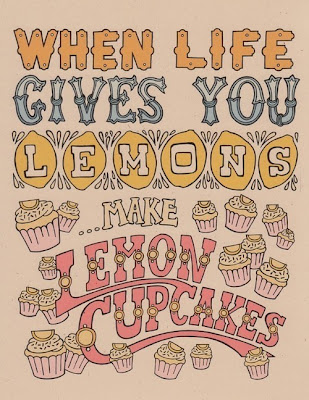 WHEN LIFE
GIVES YOU
LEMONS
...MAKE
LEMON
CUPCAKES